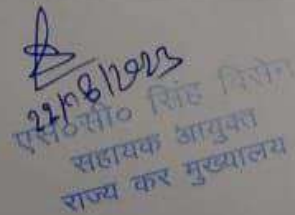 22/08/2023
एस०सी० सिंह
सहायक आयुक्त
राज्य कर मुख्यालय